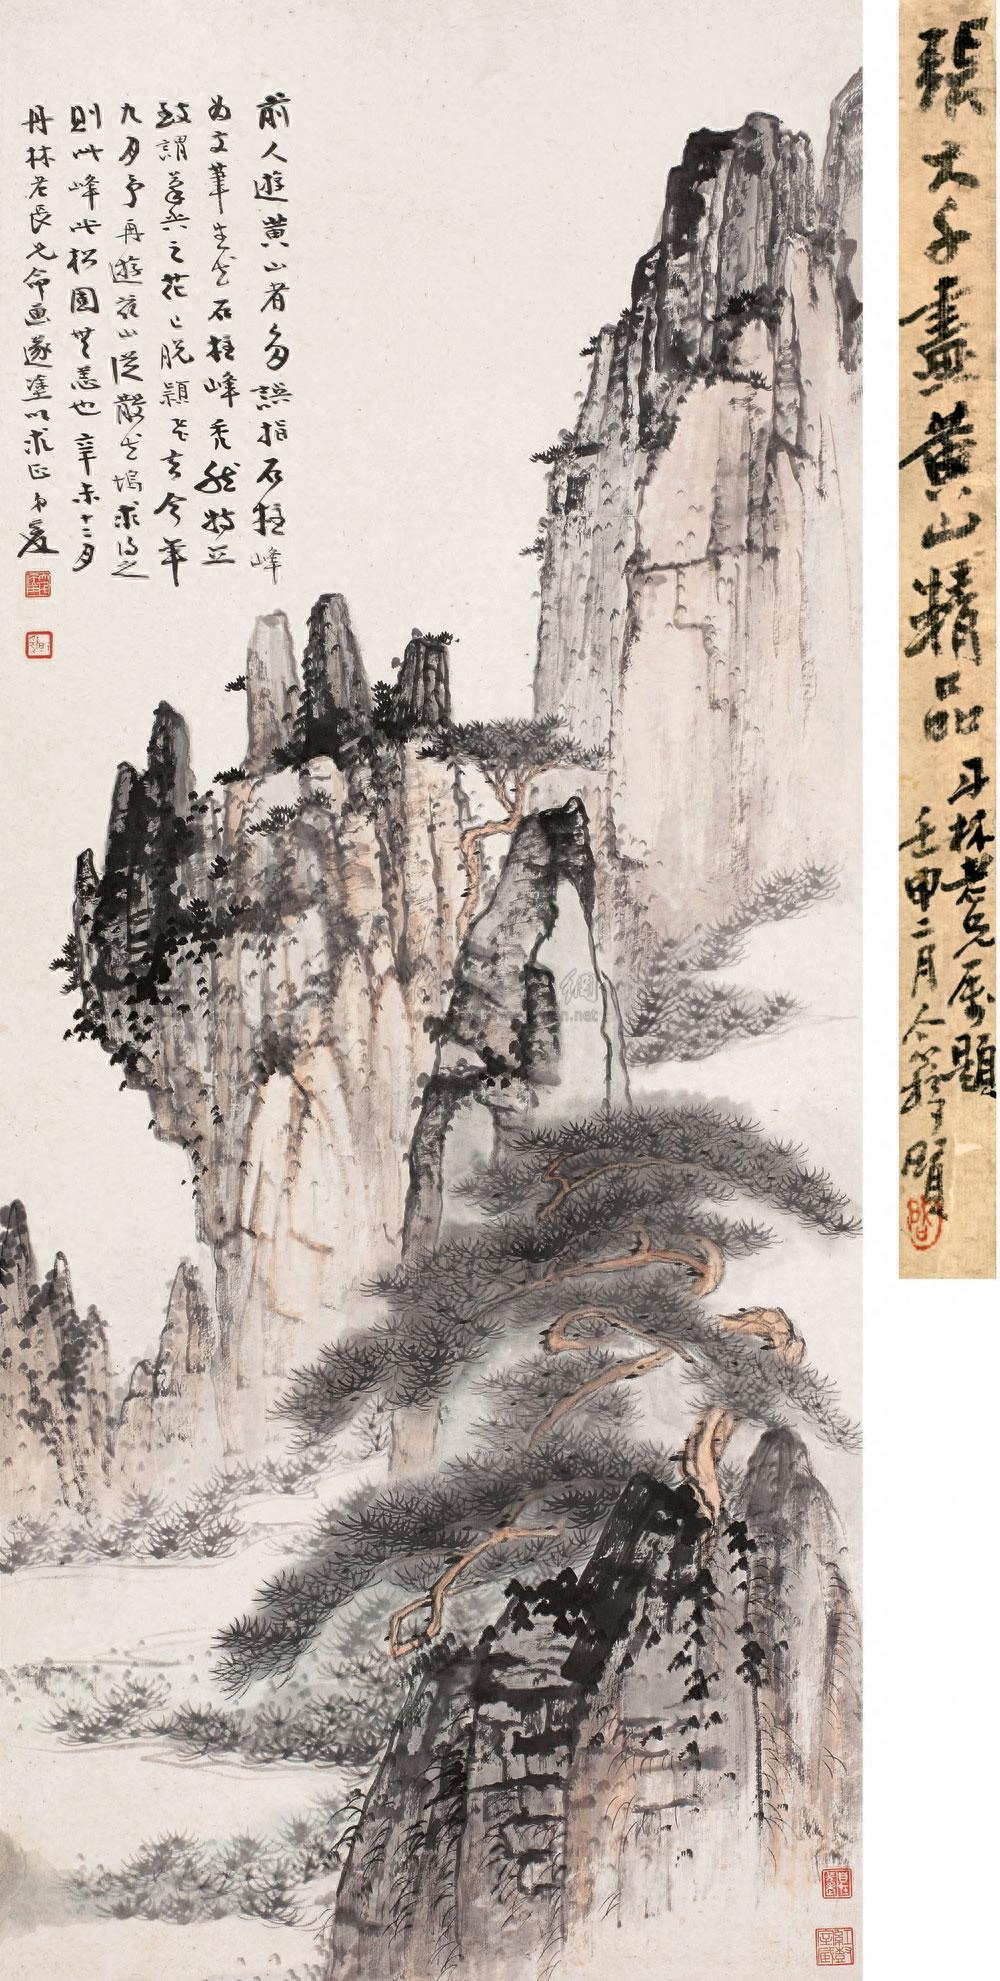 前人遊黃山者多誤指石柱峰
為文筆生花石柱峰秃然特立
致謂筆上之花已脫穎而去今年
九月予再遊黃山從散花塢求得之
則此峰此松固無恙也辛未十二月
丹林老長兄命画遂塗以求正弟爰
張大千畫黃山精品
丹林老兄属題
壬申二月